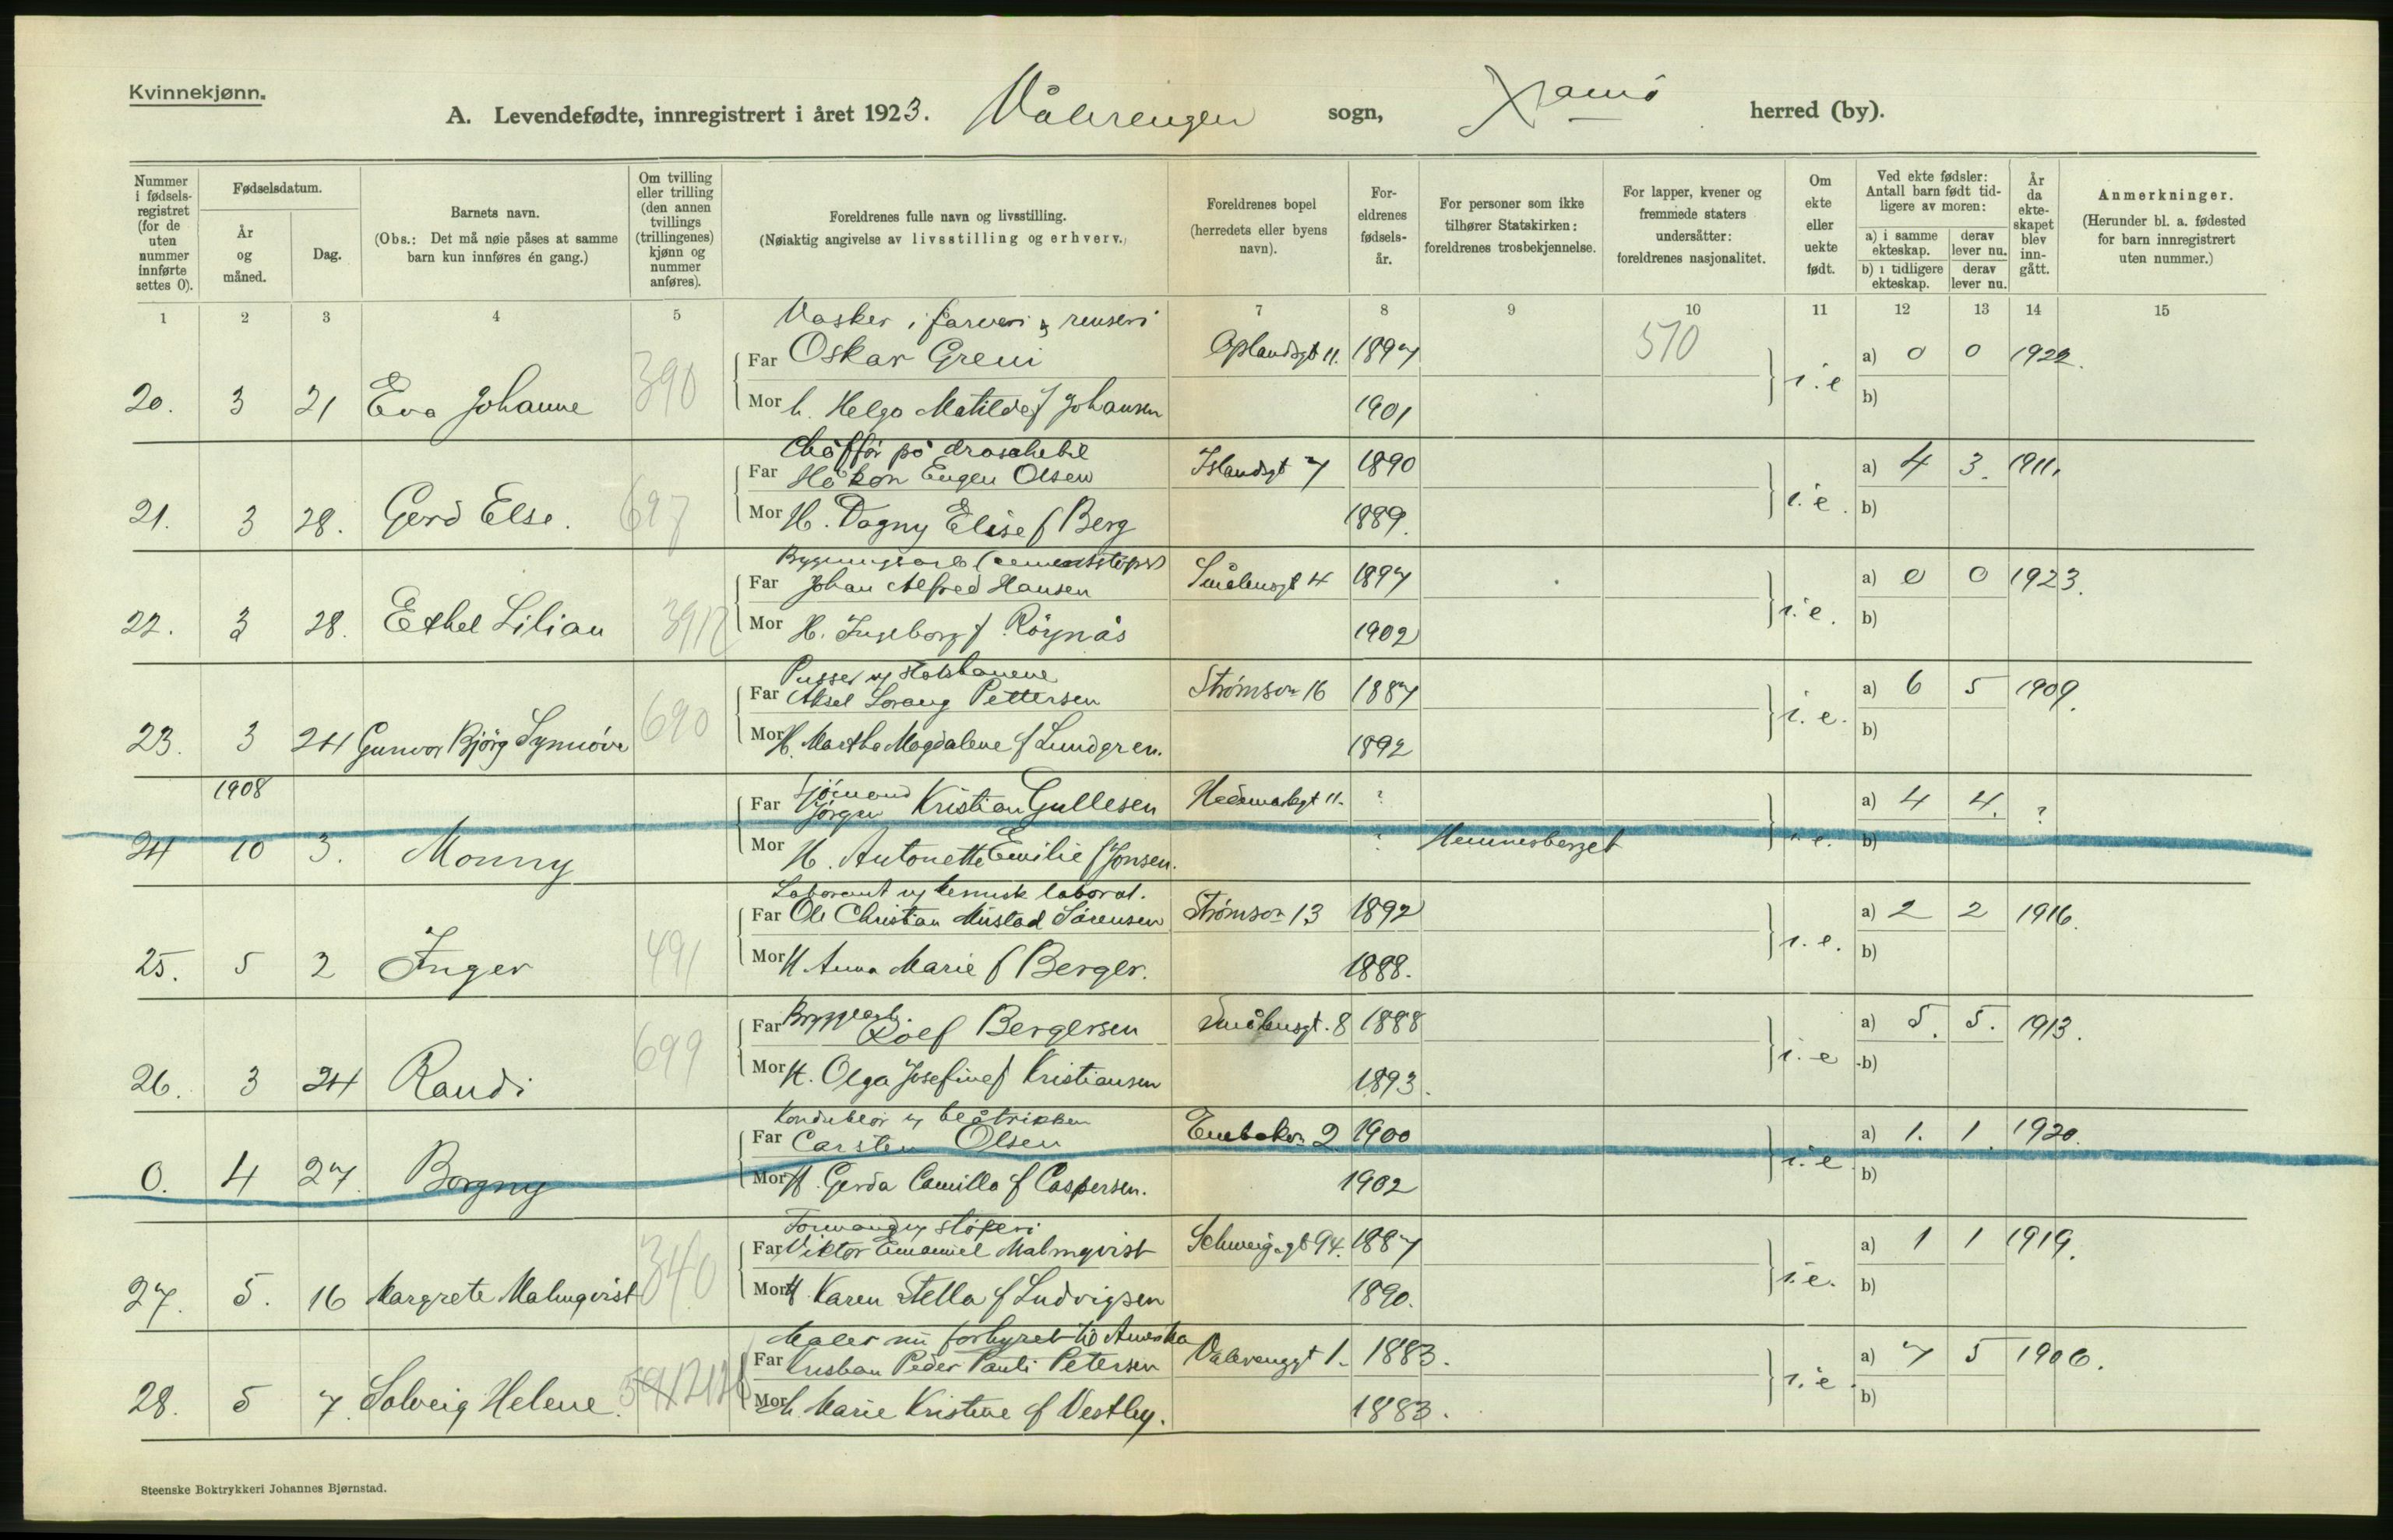 Kvinnekjønn.
A. Levendefødte, innregistrert i året 1923. Vålerengen sogn, Xania herred (by).
Nummer i fødselsregistret (for de uten nummer innførte settes 0).
Fødselsdatum.
År og måned.
Dag.
Barnets navn.
(Obs.: Det må nøie påses at samme barn kun innføres én gang.)
Om tvilling eller trilling (den annen tvillings (trillingenes) kjønn og nummer anføres).
Foreldrenes fulle navn og livsstilling.
(Nøiaktig angivelse av livsstilling og erhverv.)
Foreldrenes bopel (herredets eller byens navn).
Foreldrenes fødselsår.
For personer som ikke tilhører Statskirken: foreldrenes trosbekjennelse.
For lapper, kvener og fremmede staters undersåtter: foreldrenes nasjonalitet.
Om ekte eller uekte født.
Ved ekte fødsler: Antall barn født tidligere av moren:
a) i samme ekteskap. derav lever nu.
b) i tidligere ekteskap. derav lever nu.
År da ekteskapet blev inngått.
Anmerkninger.
(Herunder bl. a. fødested for barn innregistrert uten nummer.)
1 2 3 4 5 7 8 9 10 11 12 13 14 15
Vasker i farveri & renseri
Far Oskar Greni Oplandsgt 11. 1897 510 a) 0 0 1922.
20. 3 21 Eva Johanne 390 Mor h. Helga Matilde f Johansen 1901 i.e b)
Chåffør på droschebil
Far Håkon Eugen Olsen Islandsgt 7 1890 a) 4 3. 1911.
21. 3 28. Gerd Else. 697 Mor H. Dagny Elise f Berg 1889. i.e. b)
Bygningsarb (cementstøper)
Far Johan Alfred Hansen Smålensgt 4 1897 a) 0 0 1923.
22. 3 28. Ethel Lilian 3912 Mor H. Ingeborg f Röynås 1902 i.e. b)
Pusser v statsbanene
Far Aksel Lorang Pettersen Strømsv 16 1887 a) 6 5 1909.
23. 3 24 Gunvor Bjørg Synnøve 690 Mor H. Martha Magdalene f Lundgren. 1892 i.e. b)
1908 Sjömand
Far Jörgen Kristian Gullesen Hedemarksgt 11. ? a) 4 4. ?
24 10 3. Monny Mor H. Antonette Emilie f Jonsen. ? Hemnesberget i.e. b)
Laborant v kemisk laborat.
Far Ole Christian Mustad Sörensen Strømsv 13 1892 a) 2 2 1916.
25. 5 2 Inger 491 Mor H Anna Marie f Berger. 1888. i.e. b)
Bryggearb.
Far Rolf Bergersen Smålensgt. 8 1888 a) 5. 5. 1913.
26. 3 24 Randi 699 Mor H. Olga Josefine f Kristiansen 1893. i.e b)
Konduktør v blåtrikken
Far Carsten Olsen Enebakv 2 1900 a) 1. 1. 1920.
0. 4 27. Borgny Mor H. Gerda Camilla f Caspersen. 1902 i.e. b)
Formand v støperi
Far Viktor Emanuel Malmqvist Schweig.gt 94. 1887 a) 1 1 1919.
27. 5. 16 Margrete Malmqvist 340 Mor H Karen Stella f Ludvigsen 1890. i.e. b)
Maler nu forhyret til Amerika
Far Kristian Peder Pauli Petersen Valerenggt 1. 1883. a) 7 5 1906.
28. 5 7. Solveig Helene. Mor h. Marie Kristine f Vestby. 1883. i.e. b)
Steenske Boktrykkeri Johannes Bjørnstad.